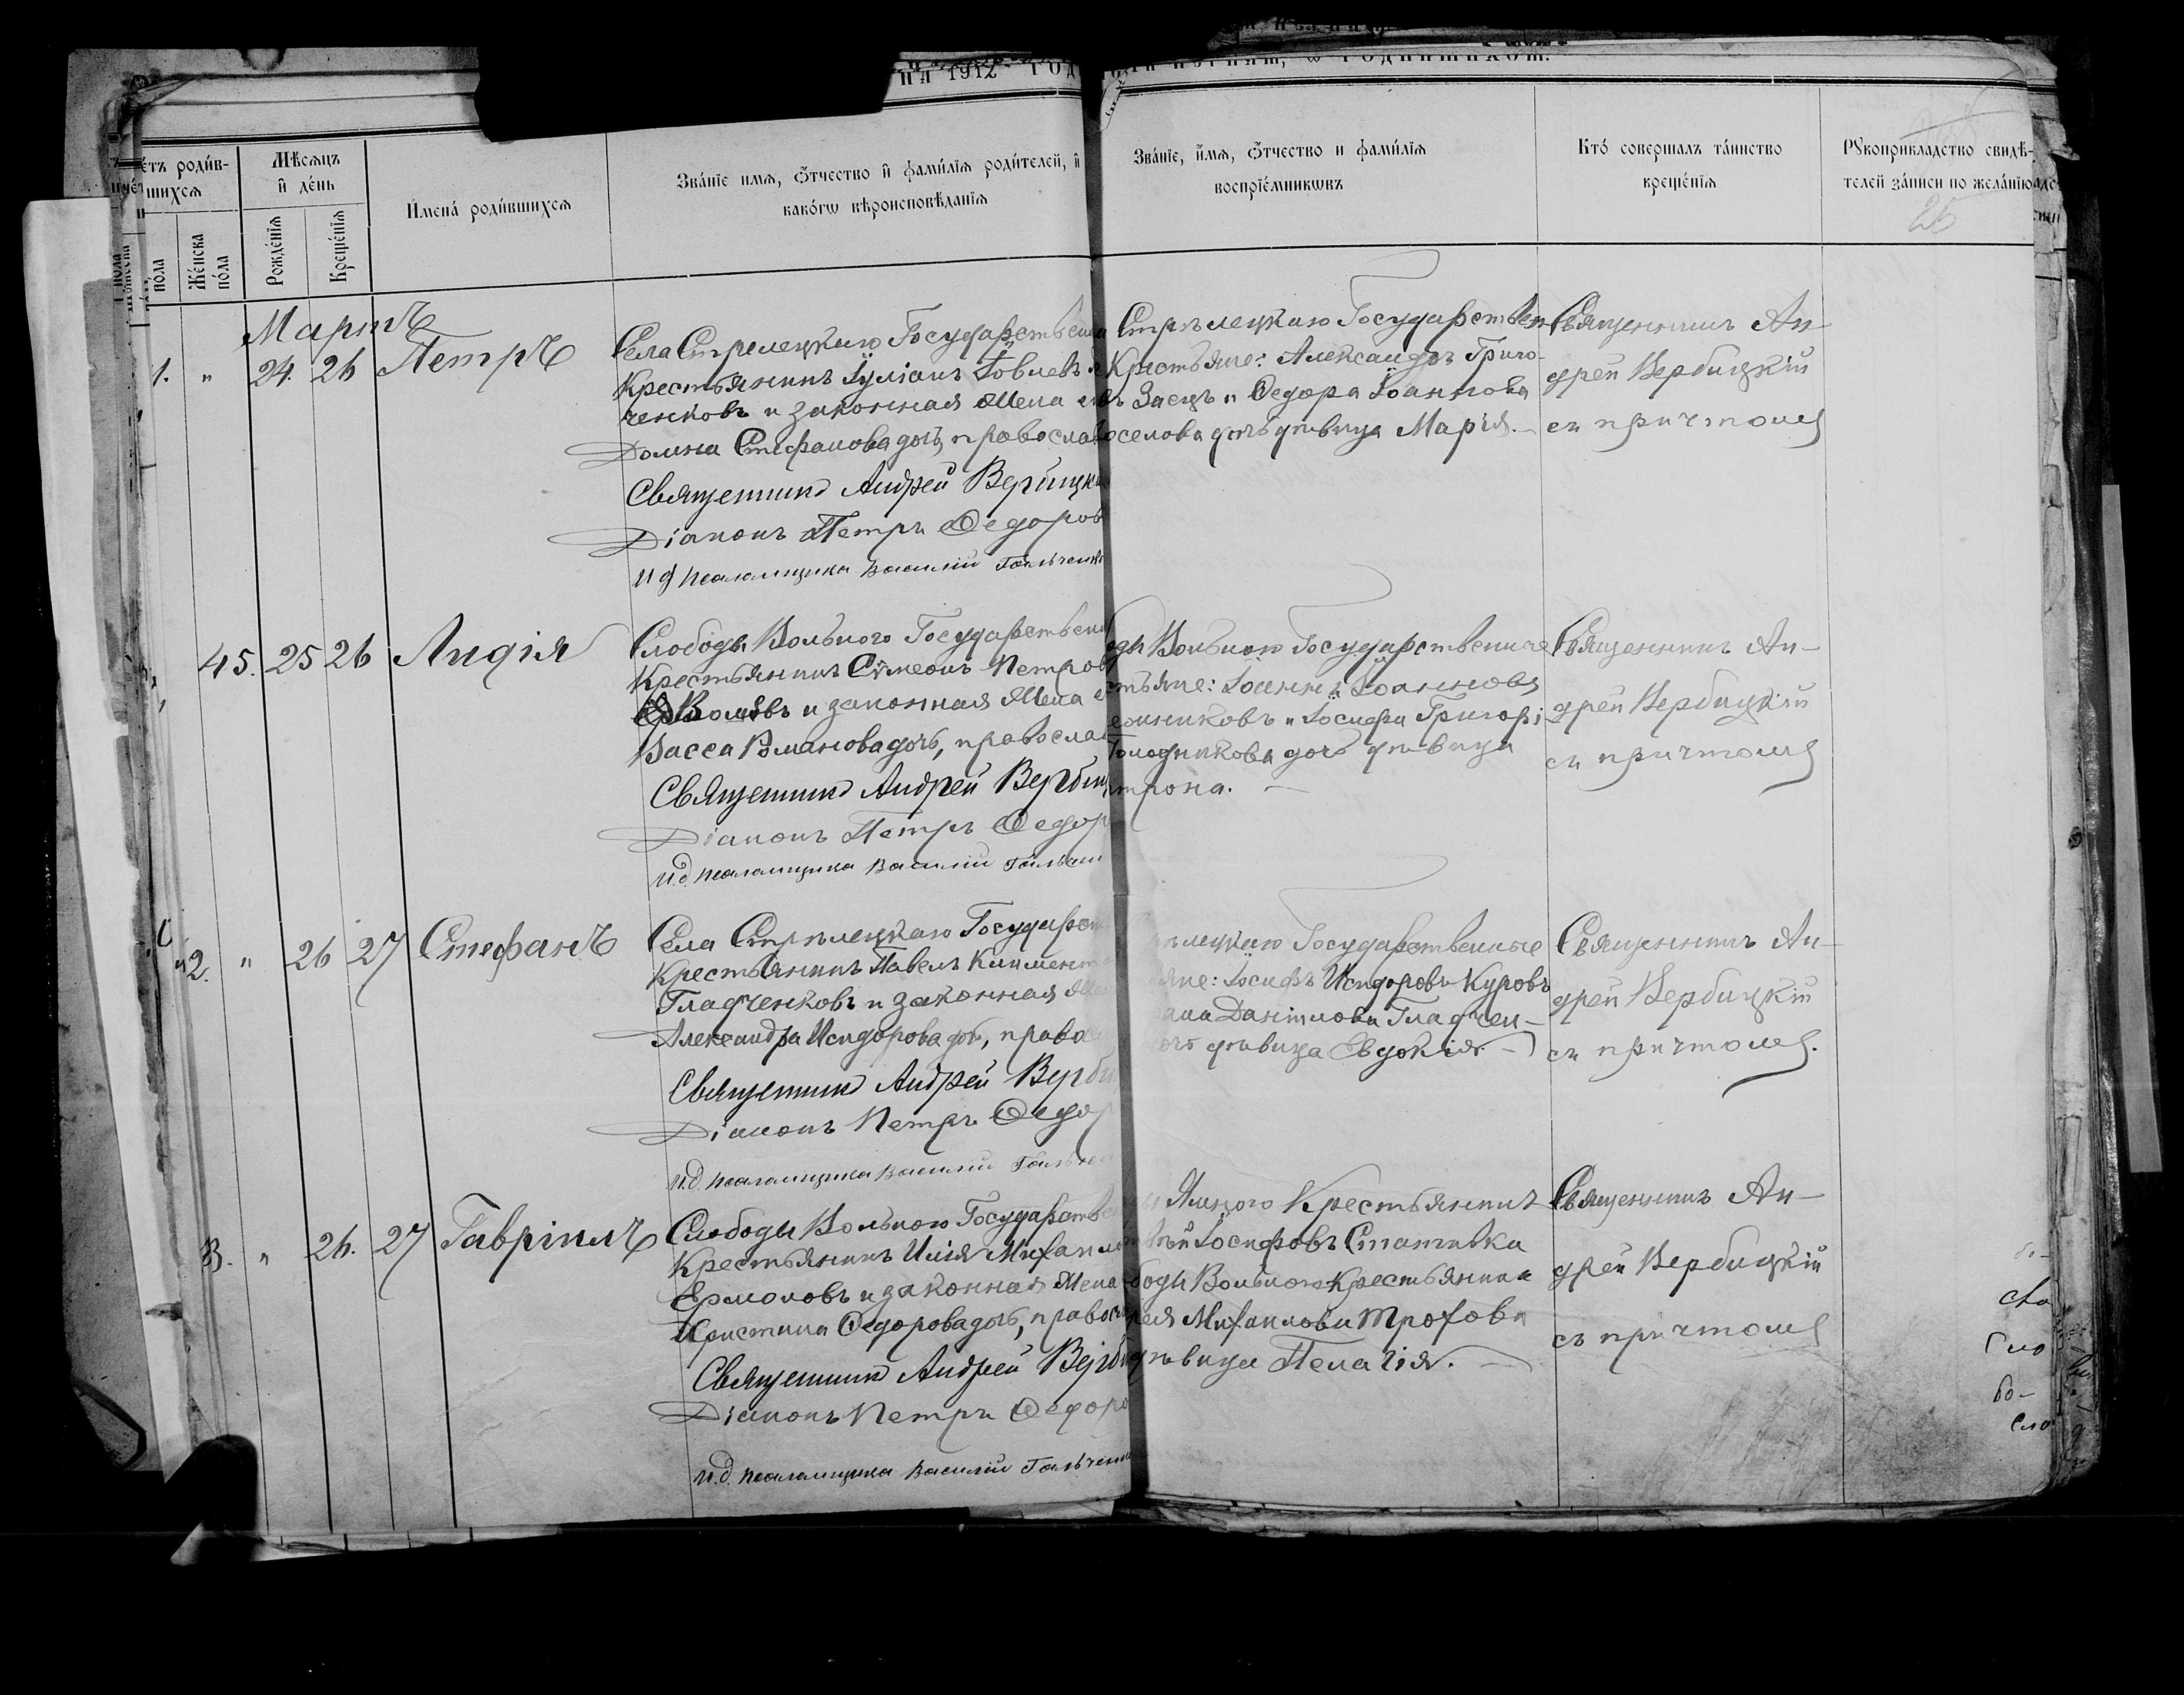 НА 1912 ГОД
Мѣсяцъ
и день
Рожденія
Крещенія
Женска
пола
Имена родившихся
Званіе имя, отчество и фамилія родителей, и
какого вѣроисповѣданія
Званіе, имя, отчество и фамилія
воспріемниковъ
Кто совершалъ таинство
крещенія
Рукоприкладство свидѣ-
телей записи по желанію
26
Мартъ
1. " 24. 26 Петръ
Села Стрелецкаго Государствен
Крестьянинъ Іуліанъ Іовлевъ
ченковъ и законная жена
Домна Стефанова дочь, правосла
Священникъ Андрей Вербицк
Діаконъ Петръ Федоров
и д псаломщика Василій Гальченк
Стрѣлецкаго Государствен
Крестьяне: Александръ Григо-
Заецъ и Федора Іоаннова
селова дочь дѣвица Марія.
Священникъ Ан-
дрей Вербицкій
съ причтомъ
45. 25 26 Лидія
Слободы Вольного Государствен
Крестьянинъ Сѵмеонъ Петров
и законная жена
Васса Романова дочь, правосла
Священникъ Андрей Верби
Діаконъ Петръ Федор
и.д. псаломщика Василій Гальчен
оды Вольного Государственные
стьяне: Іоаннъ Іоанновъ
и Іосифа Григорі
дочь дѣвица
трона.
Священникъ Ан-
дрей Вербицкій
съ причтомъ
2. " 26 27 Стефанъ
Села Стрѣлецкаго Государст
Крестьянинъ Павелъ Климент
Гладченковъ и законная же
Александра Исидорова дочь, право
Священникъ Андрей Верби
Діаконъ Петръ Федор
и.д. псаломщика Василій Гальчен
лецкаго Государственные
яне: Іосифъ Исидоровъ Куровъ
Даніилова Гладчен-
очь дѣвица Евдокія.
Священникъ Ан-
дрей Вербицкій
съ причтомъ.
3. " 26. 27 Гавріилъ
Слободы Вольного Государстве
Крестьянинъ Илія Михаило
Ермоловъ и законная жена
Христина Федорова дочь, правос
Священникъ Андрей Верби
Діаконъ Петръ Федоро
и.д. псаломщика Василій Гальченк
Крестьянинъ
Іосифовъ Статывка
боды Вольного Крестьянина
Михаилова Трохова
дѣвица Пелагія.
Священникъ Ан-
дрей Вербицкій
съ причтомъ